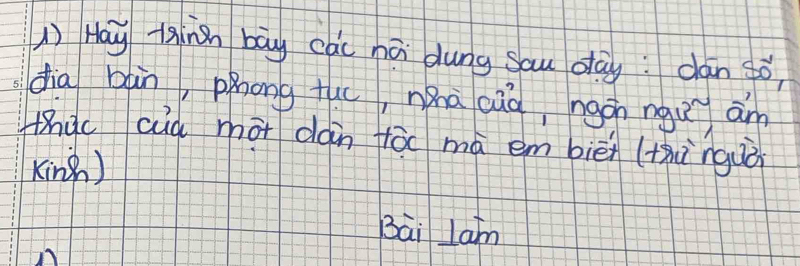 1) Hãy trình bày các nội dung sau đây: dân số,
địa bàn, phong tục, nhà cửa, ngôn ngữ, ẩm
thực của một dân tộc mà em biết (trừ người
Kinh)
Bài làm
1)